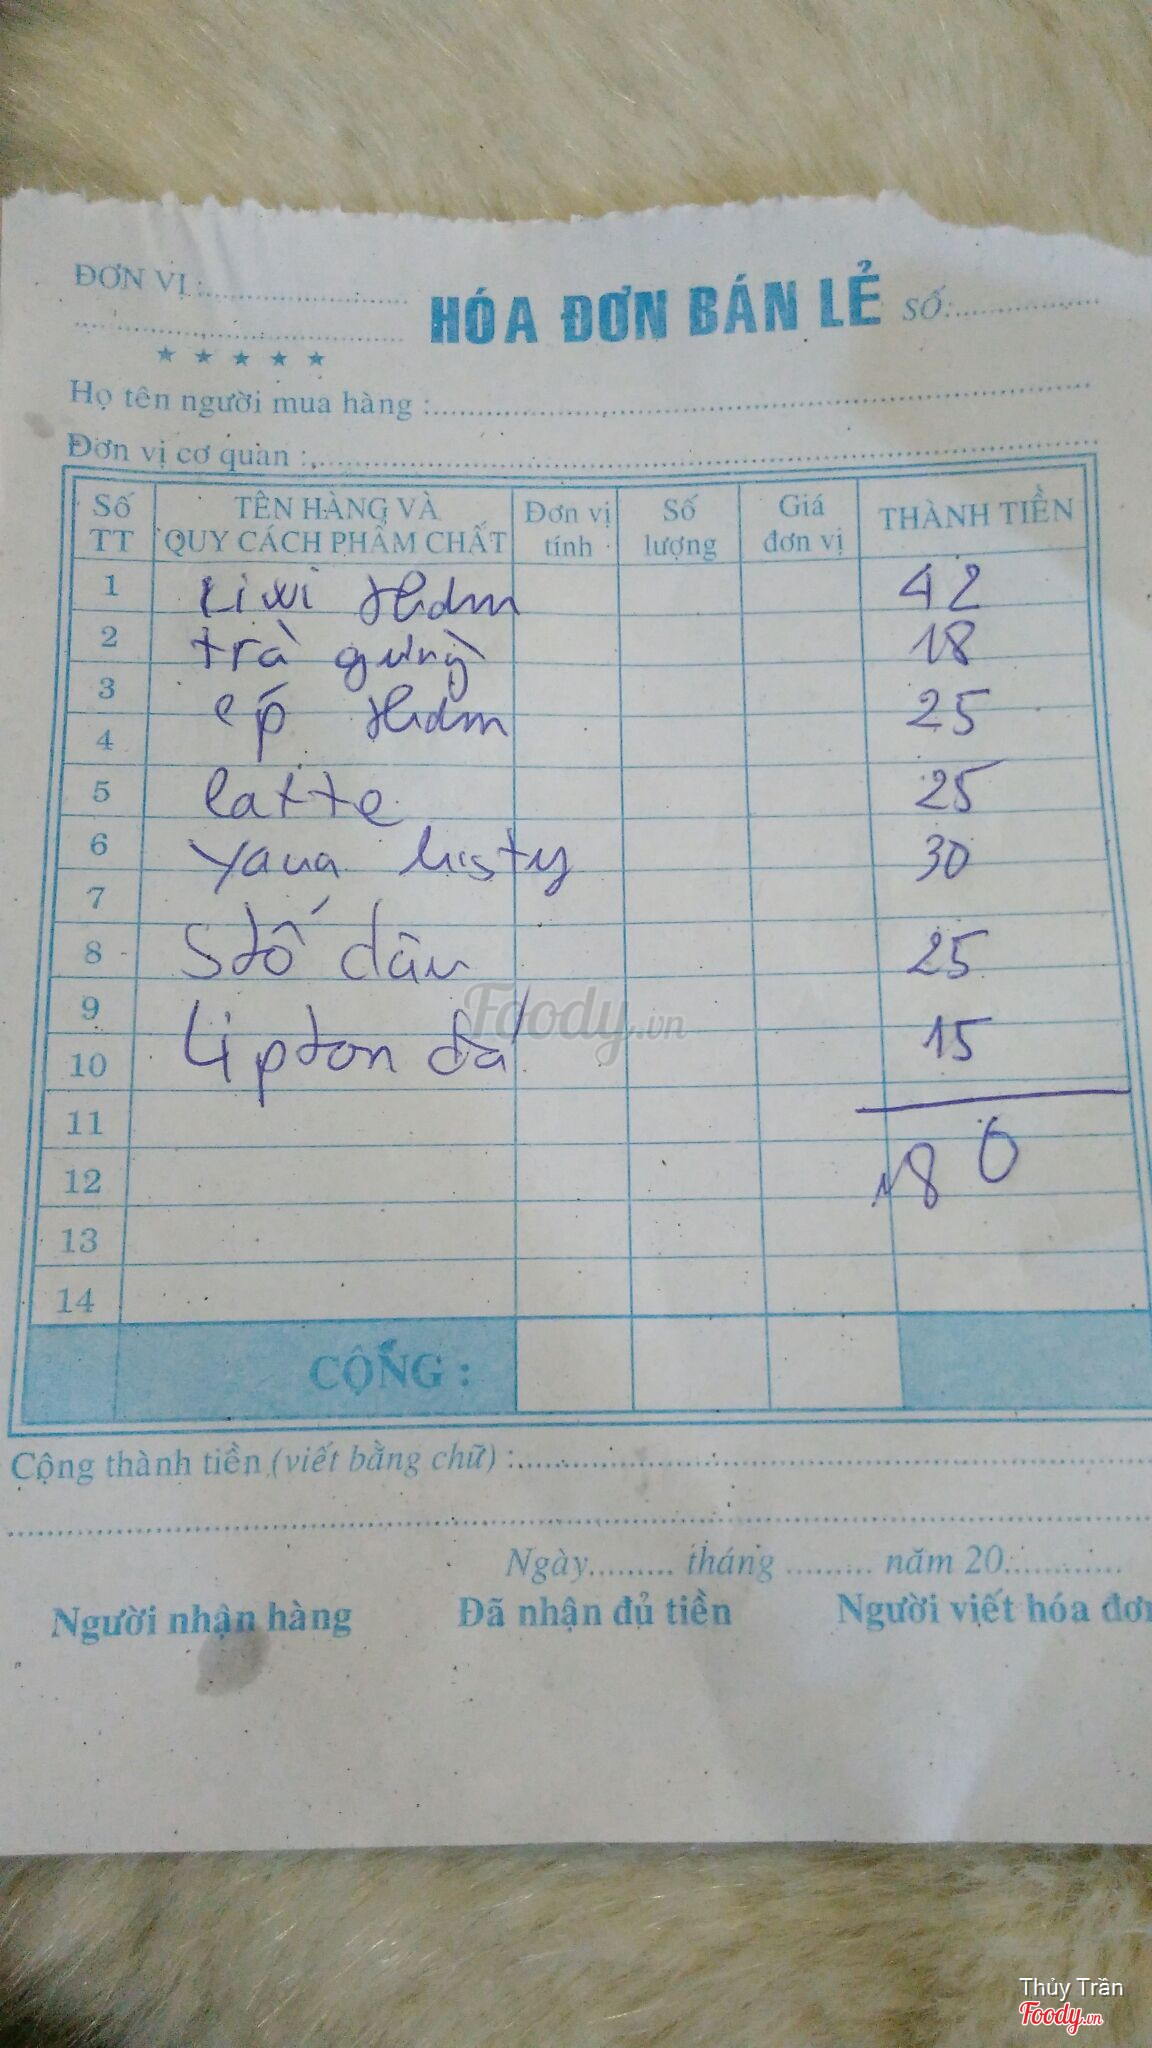 ĐƠN VỊ:
HÓA ĐƠN BÁN LẺ SỐ:
★ ★ ★ ★ ★
Họ tên người mua hàng :
Đơn vị cơ quan :
Số TT TÊN HÀNG VÀ QUY CÁCH PHẨM CHẤT Đơn vị tính Số lượng Giá đơn vị THÀNH TIỀN
1 kiwi 42
2 trà gừng 18
3 ép 25
4
5 latte 25
6 yaua 30
7
8 Stố dâu 25
9
10 Lipton đá 15
11
12 180
13
14
CỘNG :
Cộng thành tiền (viết bằng chữ) :
Ngày......... tháng ......... năm 20............
Người nhận hàng Đã nhận đủ tiền Người viết hóa đơn
Foody.vn
Thủy Trần
Foody.vn